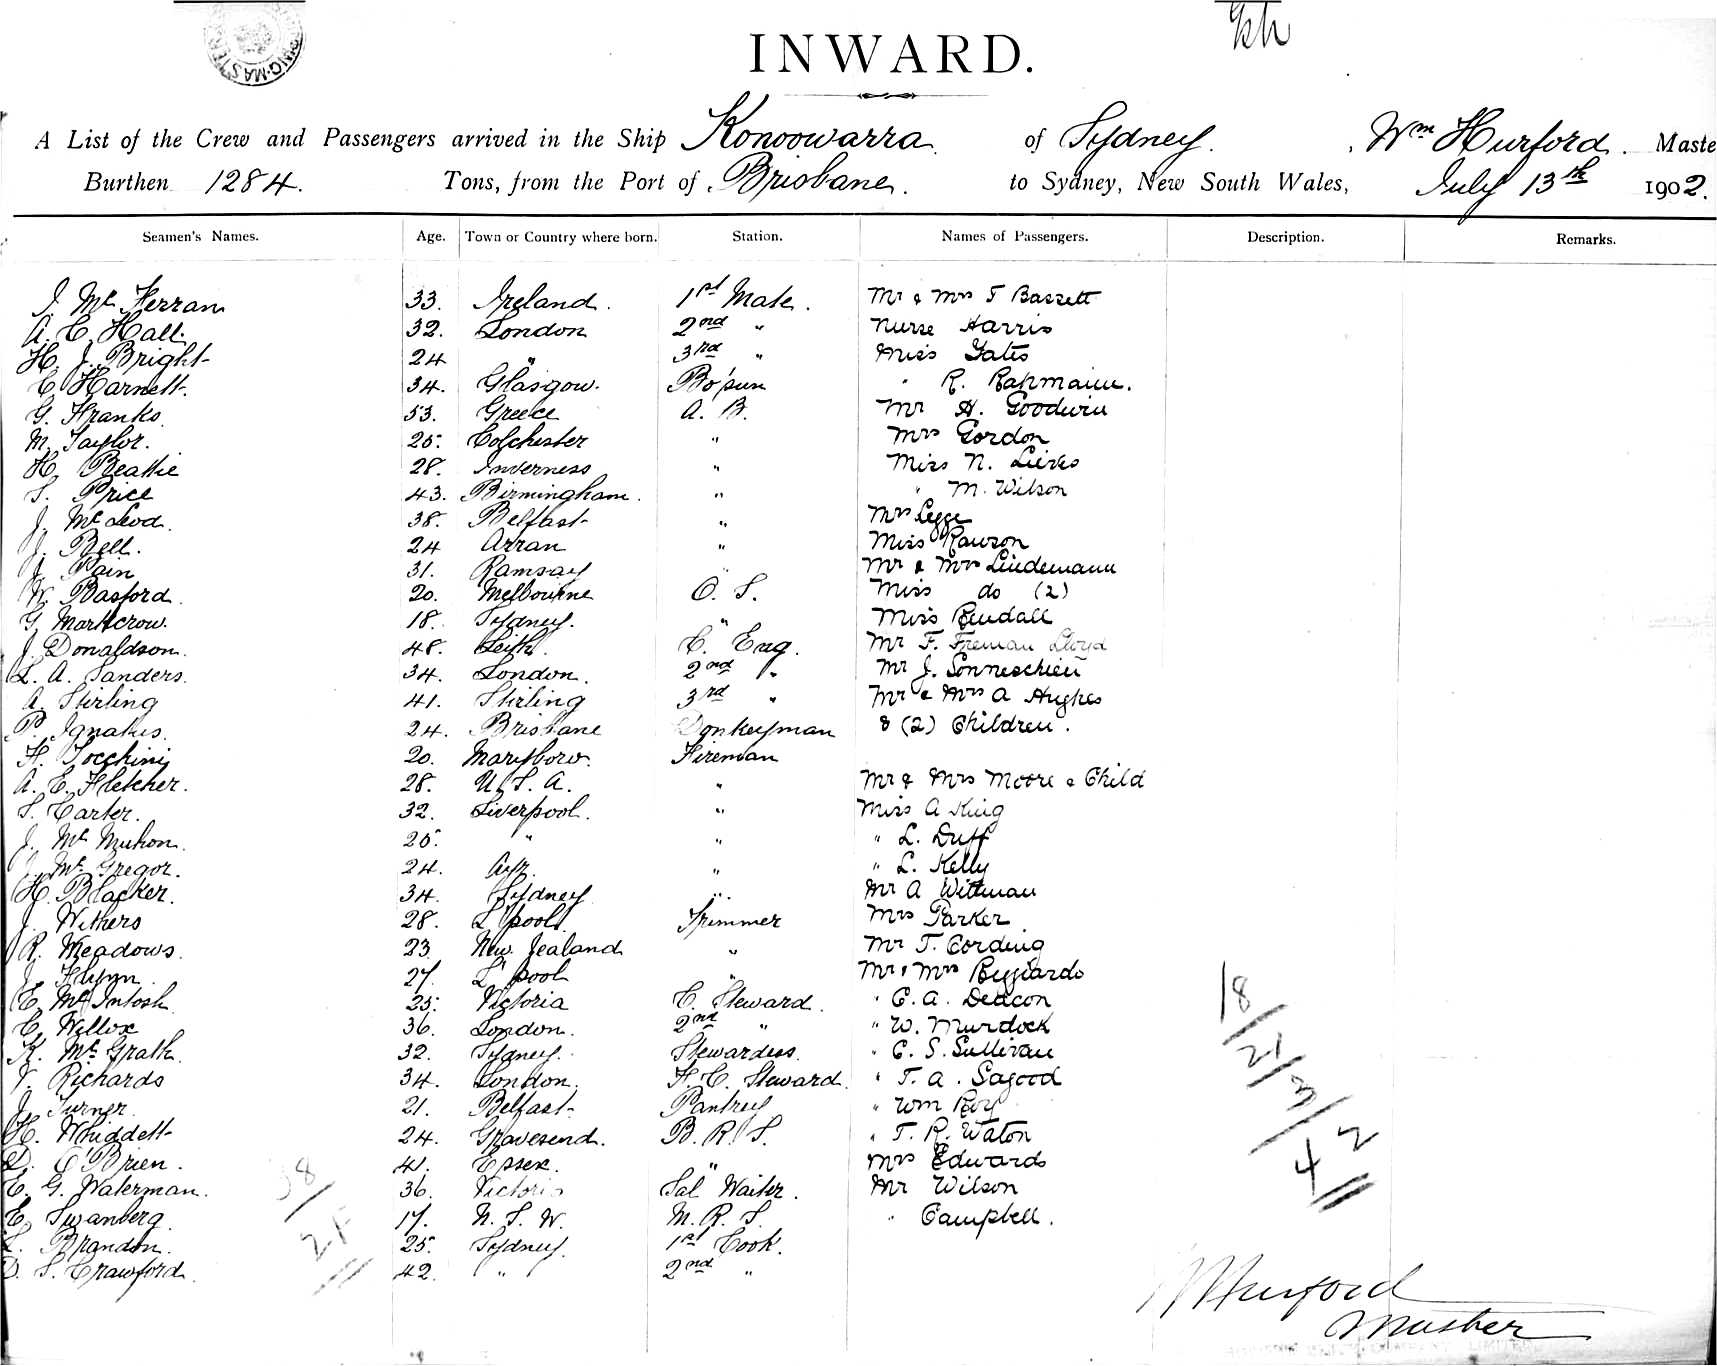 INWARD.
A List of the Crew and Passengers arrived in the Ship Konoowarra of Sydney. , Wm Hurford. Maste
Burthen 1284. Tons, from the Port of Brisbane. to Sydney, New South Wales, July 13th 1902.
Seamen's Names. Age. Town or Country where born. Station. Names of Passengers. Description. Remarks.
J. Mc Ferran 33. Ireland. 1st Mate. Mr & Mrs T Bassett
A. C. Hall. 32. London 2nd " Nurse Harris
H. J. Bright 24 " 3rd " Miss Yates
C Harnett. 34. Glasgow. Bo'sun " R.
G. Franks. 53. Greece A. B. Mr H. Goodwin
M. Taylor. 25. Colchester " Mrs Gordon
H. Beattie 28. Inverness " Miss N.
S. Price 43. Birmingham. " " M. Wilson
J. McLeod. 38. Belfast " Mrs Legge
J. Bell. 24 Arran " Miss Rawson
J Pain 31. Ramsay " Mr & Mrs Lindemann
W. Basford. 20. Melbourne O. S. Miss do (2)
G. Marhcrow. 18. Sydney. " Miss Rendall
J. Donaldson. 48. Leith. C. Eng. Mr F. Freman Lloyd
L. A. Sanders. 34. London. 2nd " Mr J. Sonneschien
A. Stirling 41. Stirling 3rd " Mr & Mrs A Hughes
P. Ignatius. 24. Brisbane Donkeyman & (2) Children.
F. Tocchini 20. Marysboro. Fireman
A. E. Fletcher. 28. U. S. A. " Mr & Mrs Moore & Child
S. Carter. 32. Liverpool. " Miss A King
J. Mc 25. " " " L. Duff
Mc Gregor. 24. Ayr. " " L. Kelly
H. Blacker. 34. Sydney " Mr A Wittman
J. Withers 28. L'pool. Trimmer Mrs Parker
R. Meadows. 23 New Zealand " Mr T. Cording
J. Flynn. 27. L'pool " Mr & Mrs
C. McIntosh 25. Victoria C. Steward. " C. A. Deacon
C. Willox 36. London. 2nd " " W. Murdock
K. Mc Grath. 32. Sydney. Stewardess. " C. S. Sullivan
V. Richards 34. London. F. C. Steward. " T. A. Sagood
J. Turner. 21. Belfast Pantry " Wm Roy
H. Whiddett 24. Gravesend. B. R. S. " T. R. Waton
D. O'Brien. 41. Essex. " Mrs Edwards
C. G. Waterman. 36. Victoria Sal Waiter. Mr Wilson
C. Swanberg. 17. N. S. W. M. R. S. " Campbell.
L. Brandon. 25. Sydney. 1st Cook.
D. S. Crawford. 42. " 2nd "
WHurford
Master